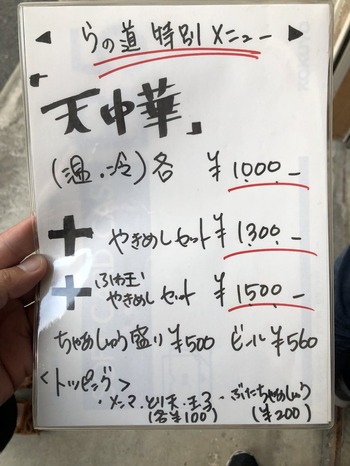 ◀ らの道 特別メニュー ▶
「天中華」
(温・冷)各 ¥1000.-
+ やきめしセット ¥1300.-
+ ふわ玉やきめしセット ¥1500.-
ちゃあしゅう盛り¥500 ビール¥560
<トッピング>
・メンマ・とり天・玉子・ぶたちゃあしゅう
(各¥100) (¥200)